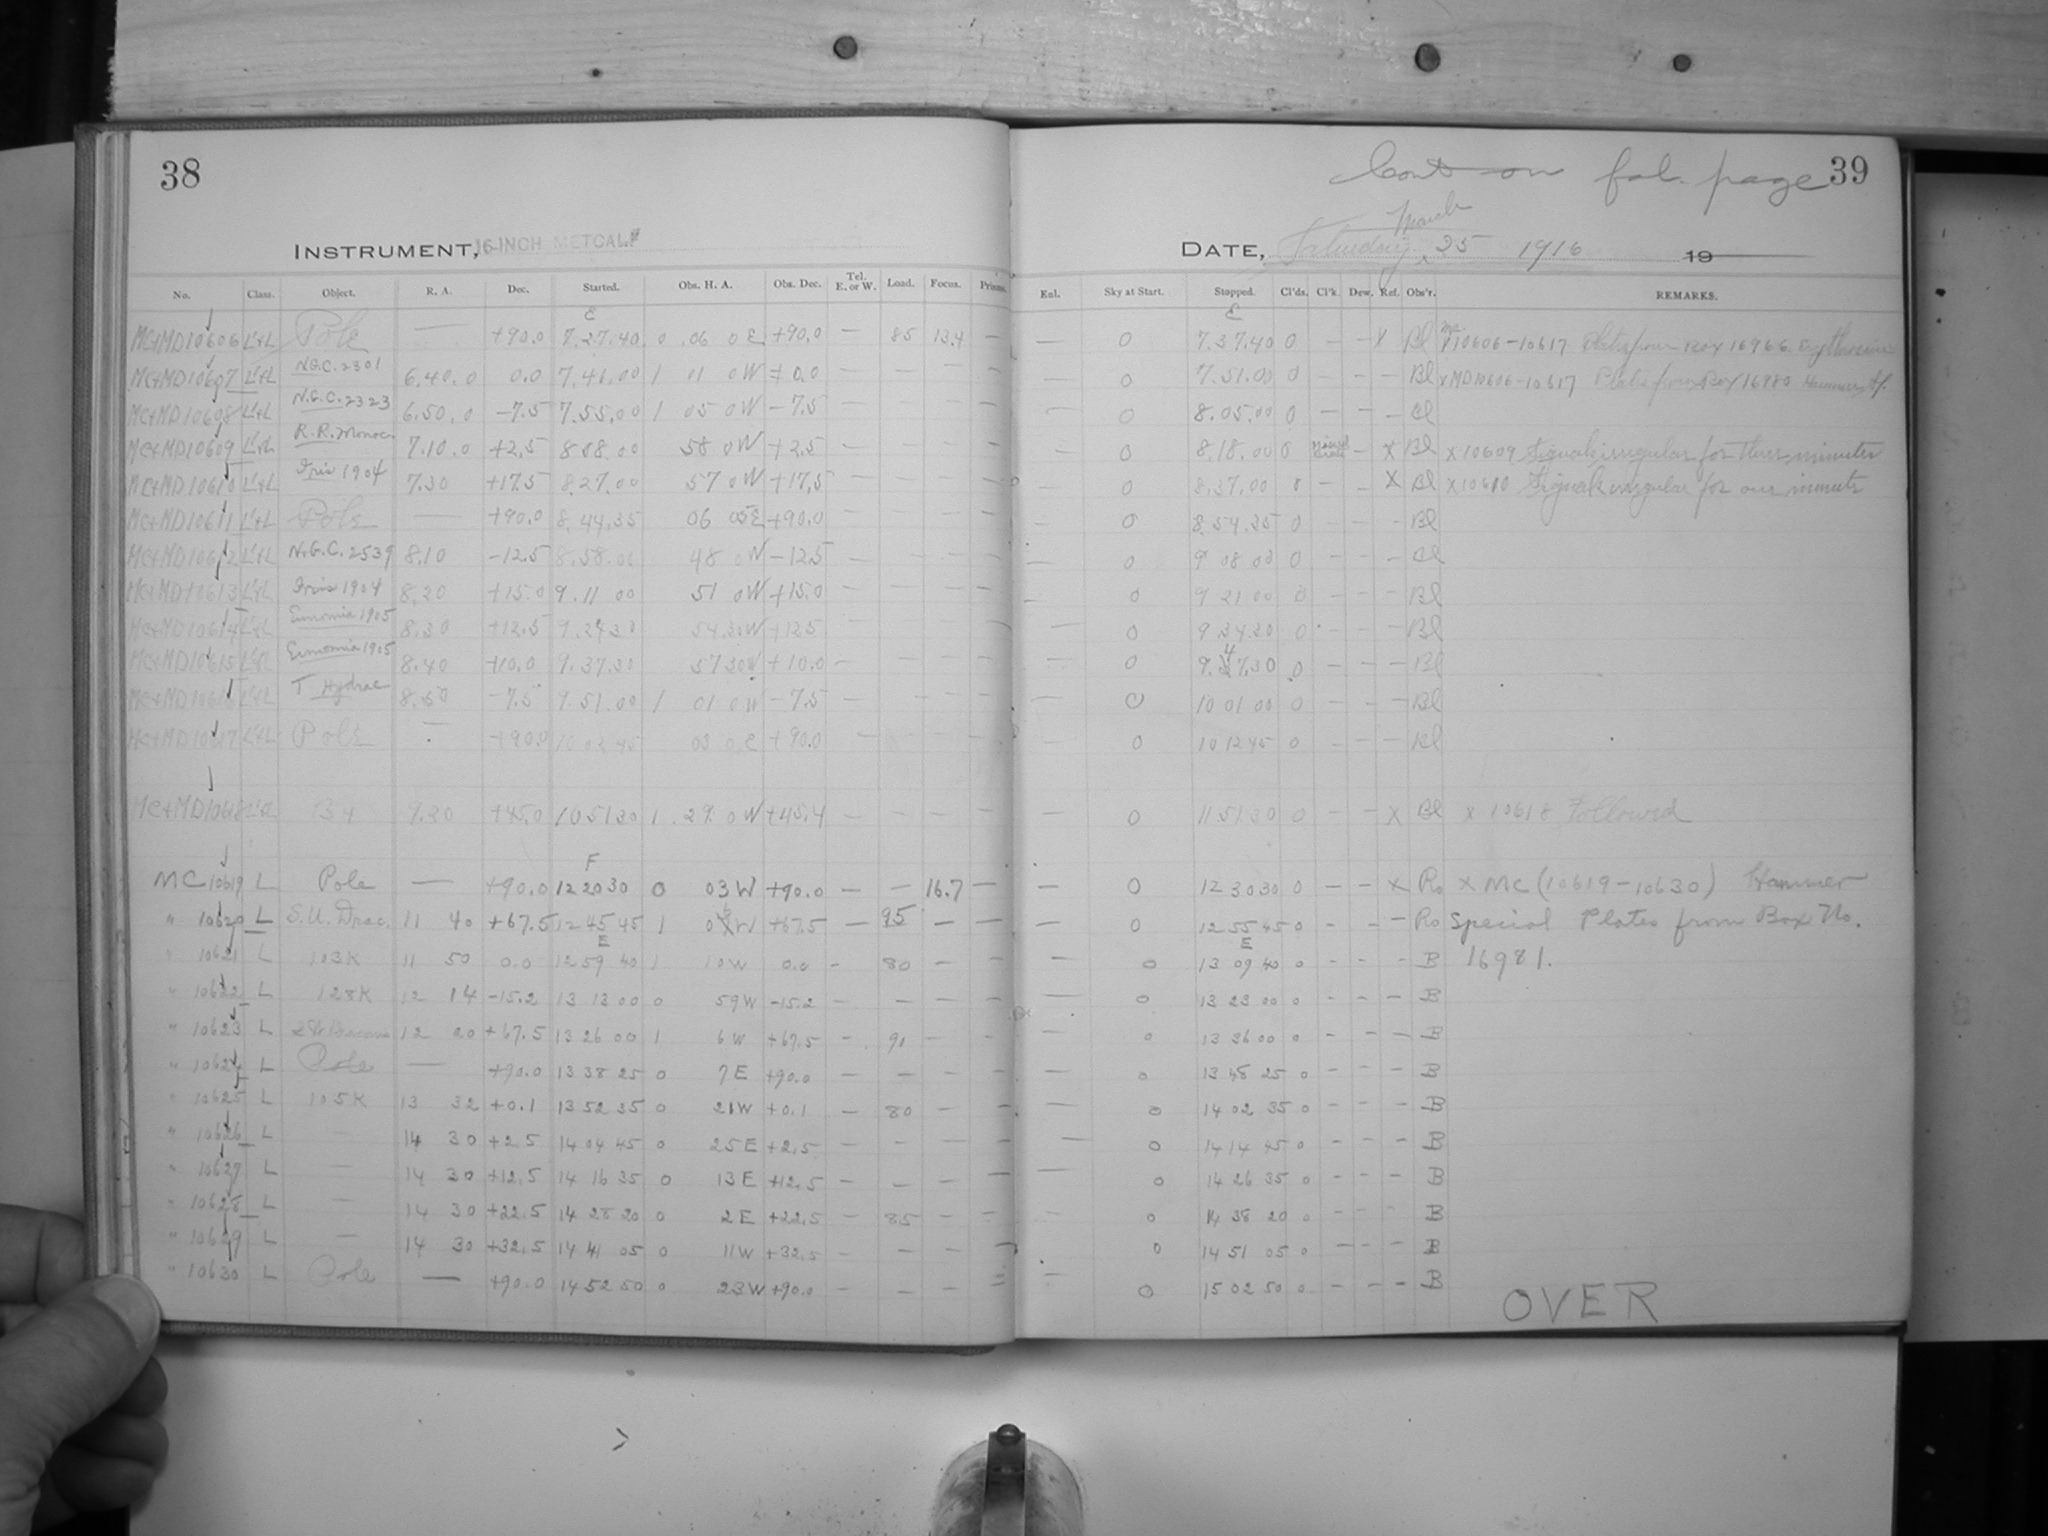 38
INSTRUMENT, 16-INCH METCALF
No. Class. Object. R. A. Dec. Started. Obs. H. A. Obs. Dec. Tel. E. or W. Load. Focus. Prisms.
E
MC+MD10606 L'+L Pole — +90.0 7.27.40 0 .06 0 E +90.0 — 85 13.4 —
MC+MD10607 L'+L N.G.C. 2301 6.40.0 0.0 7.41.00 1 01 0W + 0.0 — — — —
MC+MD10608 L'+L N.G.C. 2323 6.50.0 -7.5 7.55.00 1 05 0W -7.5 — — — —
MC+MD10609 L'+L R.R. Monoc. 7.10.0 +2.5 8 08.00 58 0W +2.5 — — — —
MC+MD10610 L'+L Iris 1904 7.30 +17.5 8.27.00 57 0W +17.5 — — — —
MC+MD10611 L'+L Pole — +90.0 8.44.35 06 05E +90.0 — — — —
MC+MD10612 L'+L N.G.C. 2539 8.10 -12.5 8.58.00 48 0W -12.5 — — — —
MC+MD10613 L'+L Iris 1904 8.20 +15.0 9.11 00 51 0W +15.0 — — — —
MC+MD10614 L'+L Eunomia 1905 8.30 +12.5 9.24 30 54 30W +12.5 — — — —
MC+MD10615 L'+L Eunomia 1905 8.40 +10.0 9.37.30 57 30W +10.0 — — — —
MC+MD10616 L'+L T Hydrae 8.50 -7.5 9.51.00 1 01 0W -7.5 — — — —
MC+MD10617 L'+L Pole — +90.0 10 02 45 03 0 E +90.0 — — — —
MC+MD10618 9.20 +45.0 10 51 30 1 .29. 0W +45.4 — — — —
F
MC 10619 L Pole — +90.0 12 20 30 0 03 W +90.0 — — 16.7 —
" 10620 L S.U. Drac. 11 40 +67.5 12 45 45 1 W +67.5 — 95 — —
E
" 10621 L 103K 11 50 0.0 12 59 40 1 10W 0.0 - 80 — —
" 10622 L 128K 12 14 -15.2 13 13 00 0 59W -15.2 — — — —
" 10623 L 12 20 +67.5 13 26 00 1 6W +67.5 — 91 — —
" 10624 L Pole — +90.0 13 38 25 0 7E +90.0 — — — —
" 10625 L 105K 13 32 +0.1 13 52 35 0 21W +0.1 — 80 — —
" 10626 L — 14 30 +2.5 14 04 45 0 25E +2.5 — — — —
" 10627 L — 14 30 +12.5 14 16 35 0 13E +12.5 — — — —
" 10628 L — 14 30 +22.5 14 28 20 0 2E +22.5 — 85 — —
" 10629 L — 14 30 +32.5 14 41 05 0 11W +32.5 — — — —
" 10630 L Pole — +90.0 14 52 50 0 23W +90.0 — — — —
Cont on fol. page 39
March
DATE, Saturday 25 1916 19
Enl. Sky at Start. Stopped. Cl'ds. Cl'k. Dew. Ref. Obs'r. REMARKS.
E
— 0 7.37.40 0 — — X Bl MC 10606-10617 Plates from Box 16966
— 0 7.51.00 0 — — — Bl x MD10606-10617 Plates from Box 16980 Hammer
— 0 8.05.00 0 — — — Bl
— 0 8.18.00 0 — X Bl x 10609 Signals irregular for three minutes
— 0 8.37.00 0 — — X Bl x 10610 Signals irregular for one minute
— 0 8.54.35 0 — — — Bl
— 0 9 08 00 0 — — — Bl
— 0 9 21 00 0 — — — Bl
— 0 9 34 30 0 — — — Bl
— 0 9.47.30 0 — — — Bl
— 0 10 01 00 0 — — — Bl
— 0 10 12 45 0 — — — Bl
— 0 11 51 30 0 — — X Bl x 10618 Followed
— 0 12 30 30 0 — — X Ro x MC (10619-10630) Hammer
— 0 12 55 45 0 — — — Ro Special Plates from Box No.
E
— 0 13 09 40 0 — — — B 16981.
— 0 13 23 00 0 — — — B
— 0 13 36 00 0 — — — B
— 0 13 48 25 0 — — — B
— 0 14 02 35 0 — — — B
— 0 14 14 45 0 — — — B
— 0 14 26 35 0 — — — B
— 0 14 38 20 0 — — — B
— 0 14 51 05 0 — — — B
— 0 15 02 50 0 — — — B
OVER